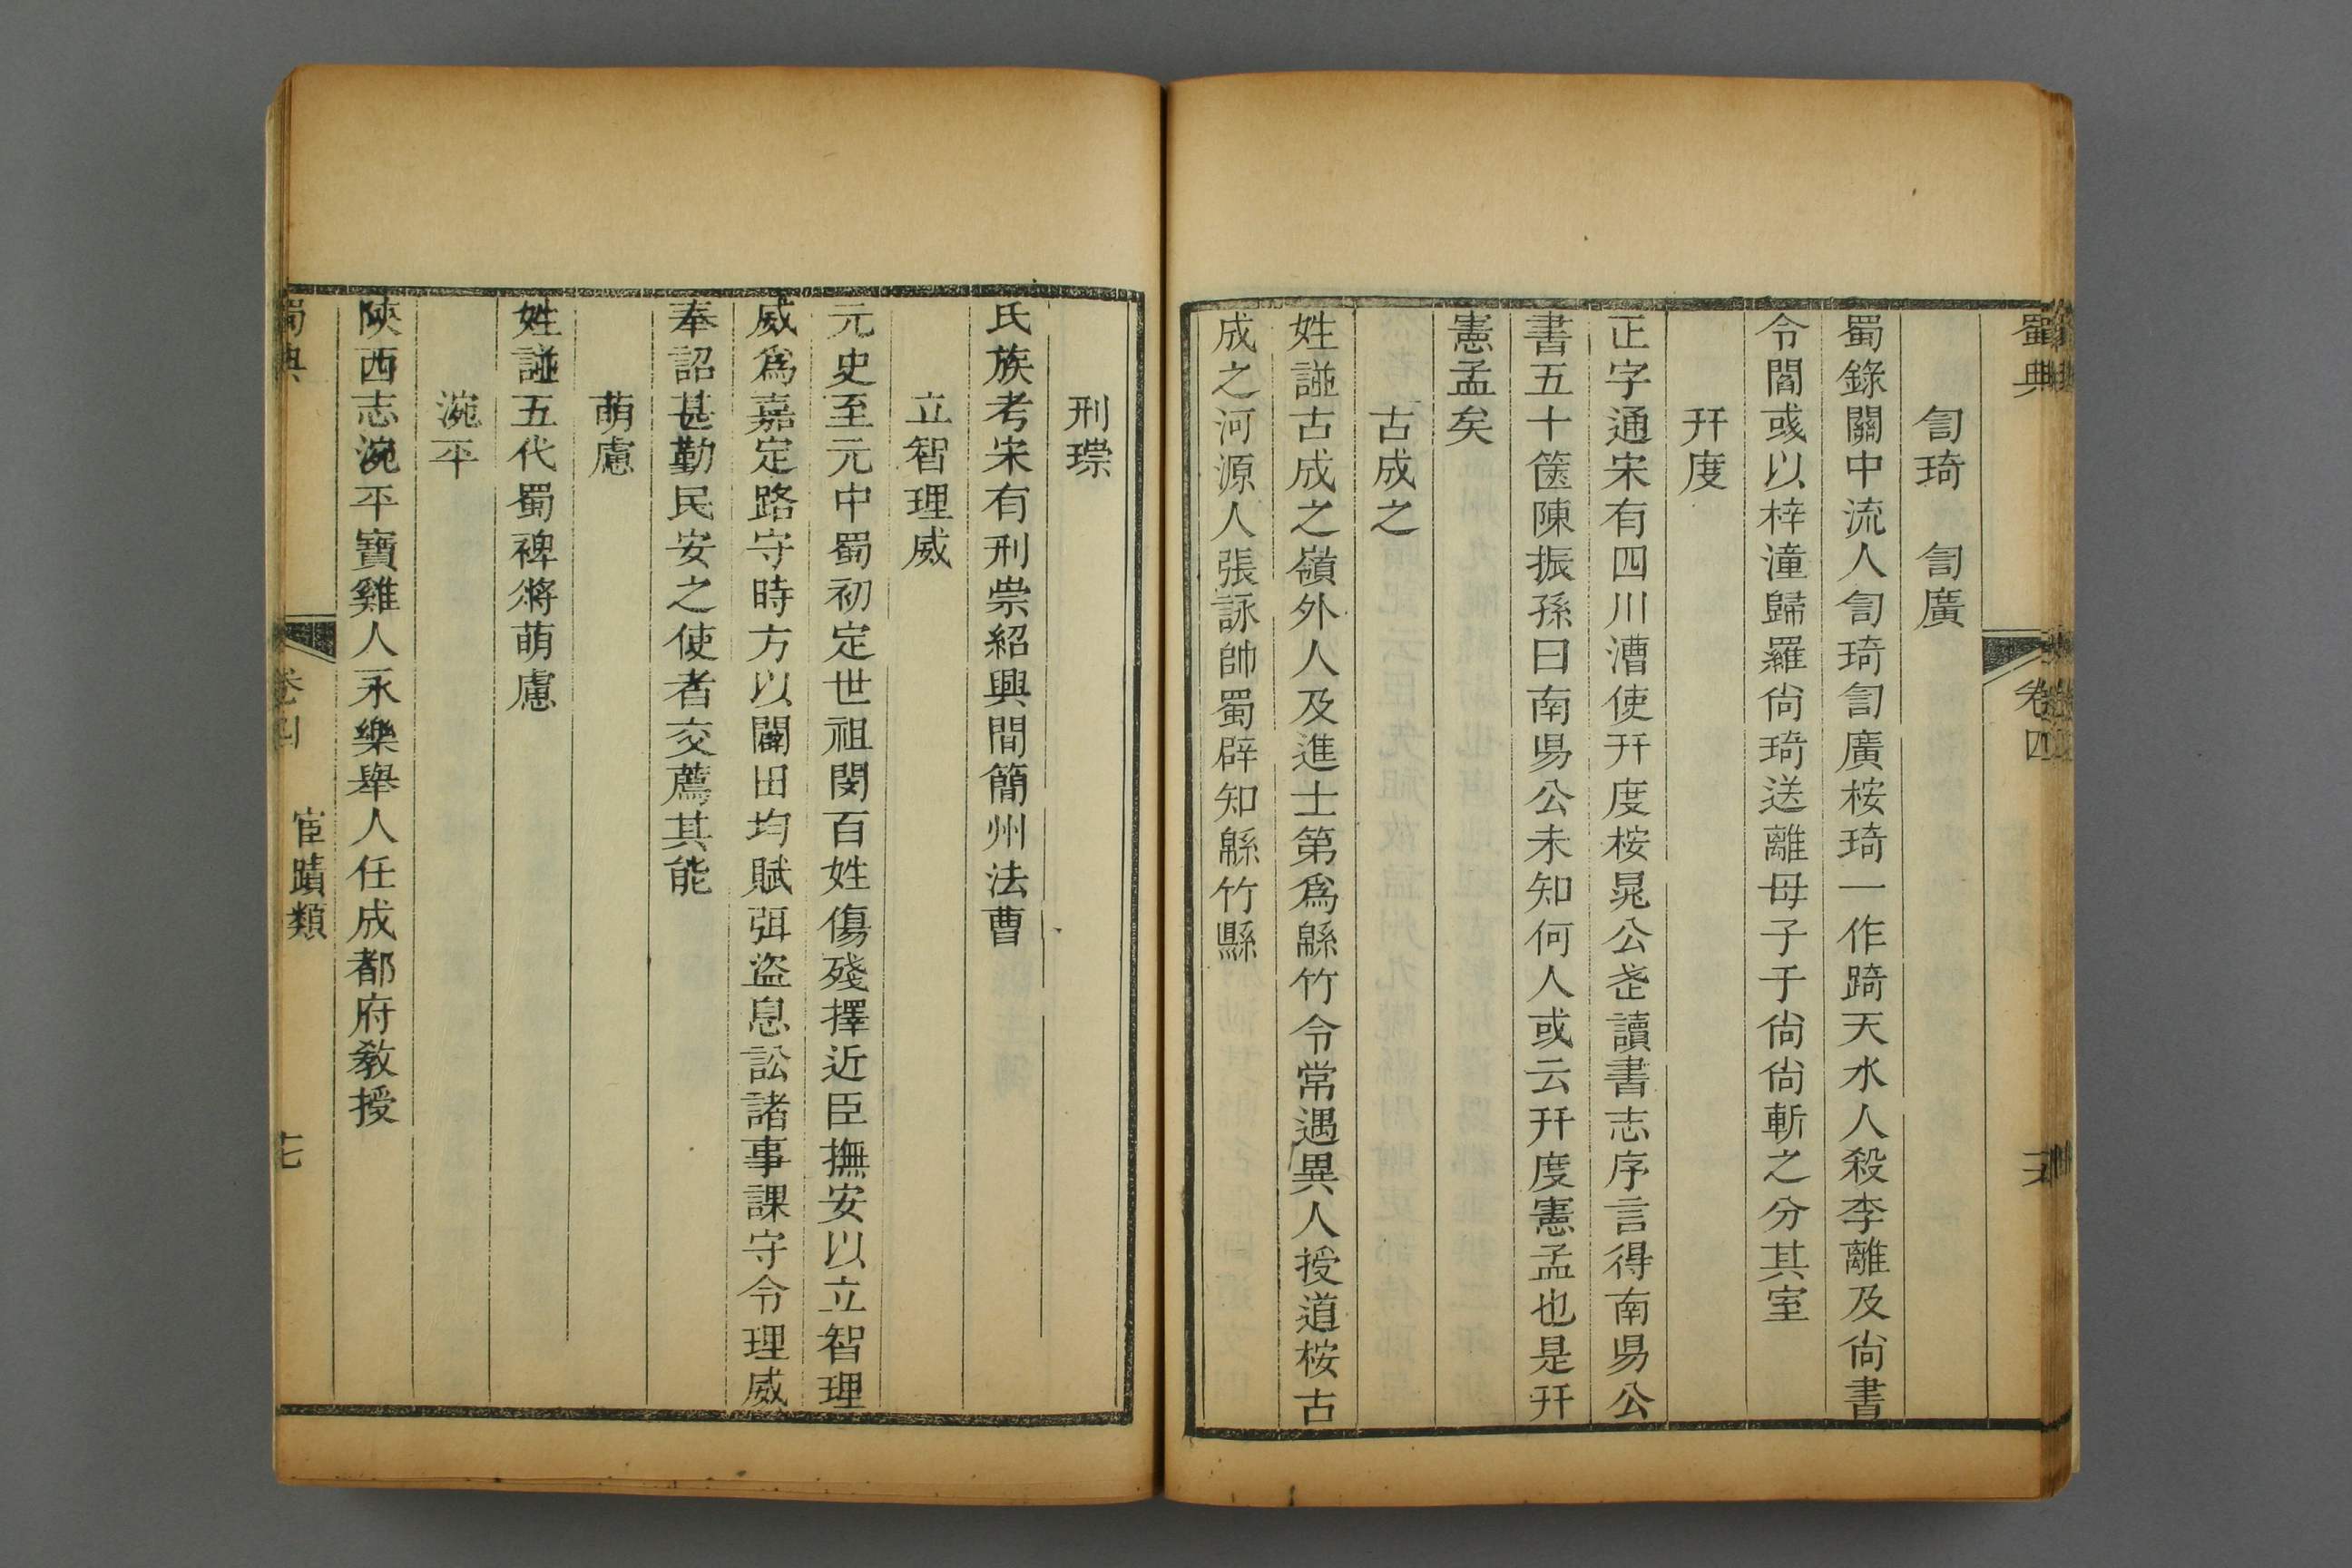 蜀典
卷四
訇琦　訇廣
蜀錄關中流人訇琦訇廣桉琦一作踦天水人殺李離及尙書
令閻彧以梓潼歸羅尙琦送離母子于尙尙斬之分其室
幵度
正字通宋有四川漕使幵度桉晁公武讀書志序言得南昜公
書五十篋陳振孫曰南昜公未知何人或云幵度憲孟也是幵
憲孟矣
古成之
姓譜古成之嶺外人及進士第爲緜竹令常遇異人授道桉古
成之河源人張詠帥蜀辟知緜竹縣
刑
氏族考宋有刑祟紹興間簡州法曹
立智理威
元史至元中蜀初定世祖閔百姓傷殘擇近臣撫安以立智理
威爲嘉定路守時方以闢田均賦弭盜息訟諸事課守令理威
奉詔甚勤民安之使者交薦其能
萌慮
姓譜五代蜀裨將萌慮
涴平
陝西志涴平寶雞人永樂舉人任成都府敎授
蜀典
卷四
宦蹟類
七